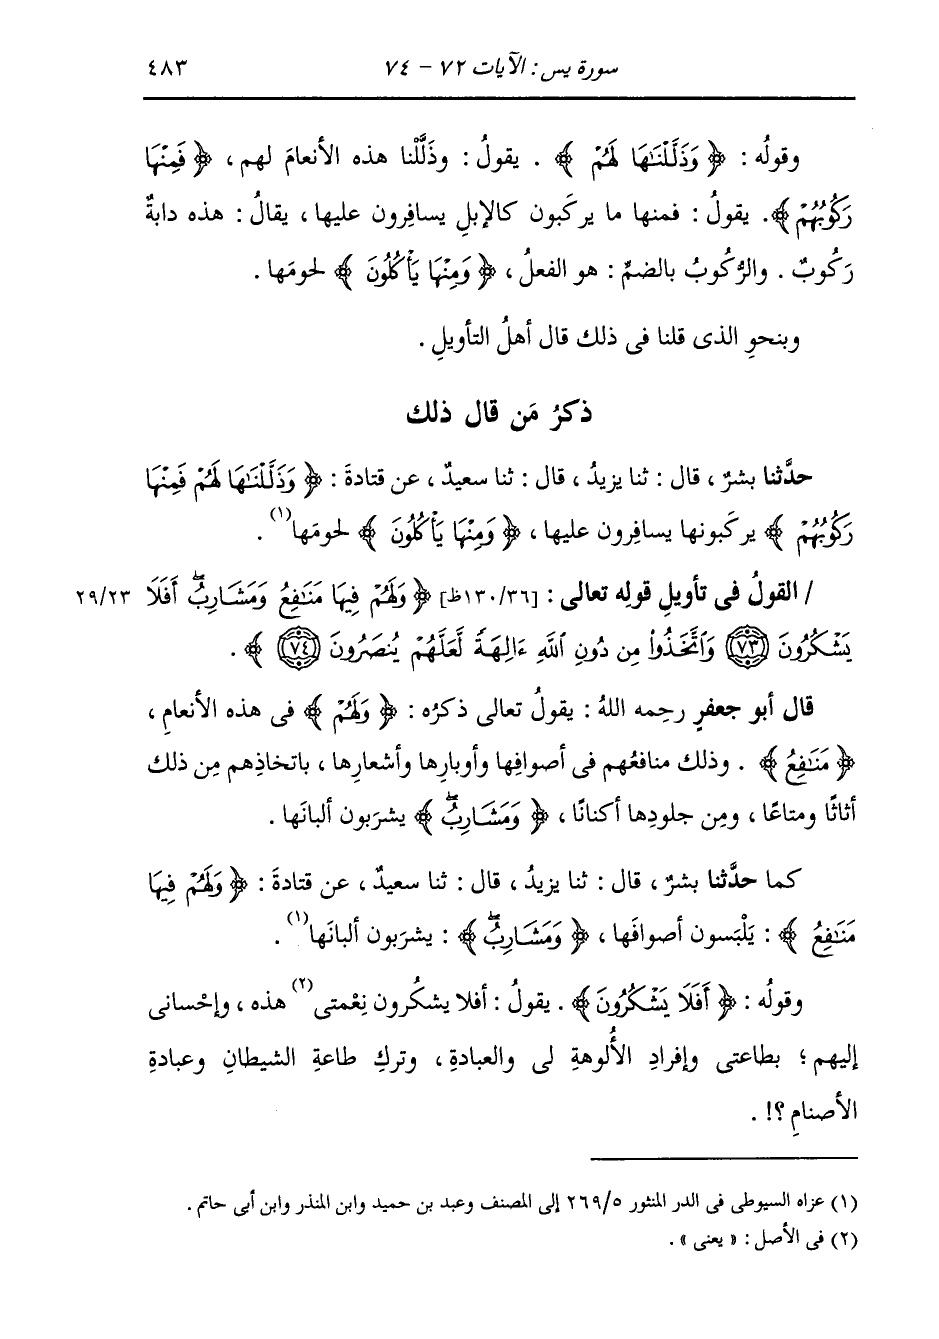 سورة يس : الآيات ٧٢ - ٧٤ ٤٨٣
وقولُه : ﴿ وَذَلَّلْنَٰهَا لَهُمْ ﴾ . يقولُ : وذَلَّلْنا هذه الأنعامَ لهم ، ﴿ فَمِنْهَا
رَكُوبُهُمْ ﴾. يقولُ : فمنها ما يركَبون كالإبلِ يسافِرون عليها ، يقالُ : هذه دابةٌ
رَكُوبٌ . والرُّكوبُ بالضمِّ : هو الفعلُ ، ﴿ وَمِنْهَا يَأْكُلُونَ ﴾ لحومَها .
وبنحوِ الذى قلنا فى ذلك قال أهلُ التأويلِ .
ذكرُ مَن قال ذلك
حدَّثنا بشرٌ ، قال : ثنا يزيدُ ، قال : ثنا سعيدٌ ، عن قتادةَ : ﴿ وَذَلَّلْنَٰهَا لَهُمْ فَمِنْهَا
رَكُوبُهُمْ ﴾ يركَبونها يسافِرون عليها ، ﴿ وَمِنْهَا يَأْكُلُونَ ﴾ لحومَها(١) .
/ القولُ فى تأويلِ قولِه تعالى : [١٣٠/٣٦ظ] ﴿ وَلَهُمْ فِيهَا مَنَٰفِعُ وَمَشَارِبُۖ أَفَلَا ٢٩/٢٣
يَشْكُرُونَ (٧٣) وَٱتَّخَذُوا۟ مِن دُونِ ٱللَّهِ ءَالِهَةً لَّعَلَّهُمْ يُنصَرُونَ (٧٤) ﴾ .
قال أبو جعفرٍ رحِمه اللهُ : يقولُ تعالى ذكرُه : ﴿ وَلَهُمْ ﴾ فى هذه الأنعامِ ،
﴿ مَنَٰفِعُ ﴾ . وذلك منافعُهم فى أصوافِها وأوبارِها وأشعارِها ، باتخاذِهم مِن ذلك
أثاثًا ومتاعًا ، ومِن جلودِها أكنانًا ، ﴿ وَمَشَارِبُۖ ﴾ يشرَبون ألبانَها .
كما حدَّثنا بشرٌ ، قال : ثنا يزيدُ ، قال : ثنا سعيدٌ ، عن قتادةَ : ﴿ وَلَهُمْ فِيهَا
مَنَٰفِعُ ﴾ : يَلْبَسون أصوافَها ، ﴿ وَمَشَارِبُۖ ﴾ : يشرَبون ألبانَها(١) .
وقولُه : ﴿ أَفَلَا يَشْكُرُونَ ﴾ . يقولُ : أفلا يشكُرون نِعْمتى(٢) هذه ، وإحْسانى
إليهم ؛ بطاعتى وإفرادِ الأُلوهةِ لى والعبادةِ ، وتركِ طاعةِ الشيطانِ وعبادةِ
الأصنامِ ؟! .
(١) عزاه السيوطى فى الدر المنثور ٢٦٩/٥ إلى المصنف وعبد بن حميد وابن المنذر وابن أبى حاتم .
(٢) فى الأصل : « يعنى » .